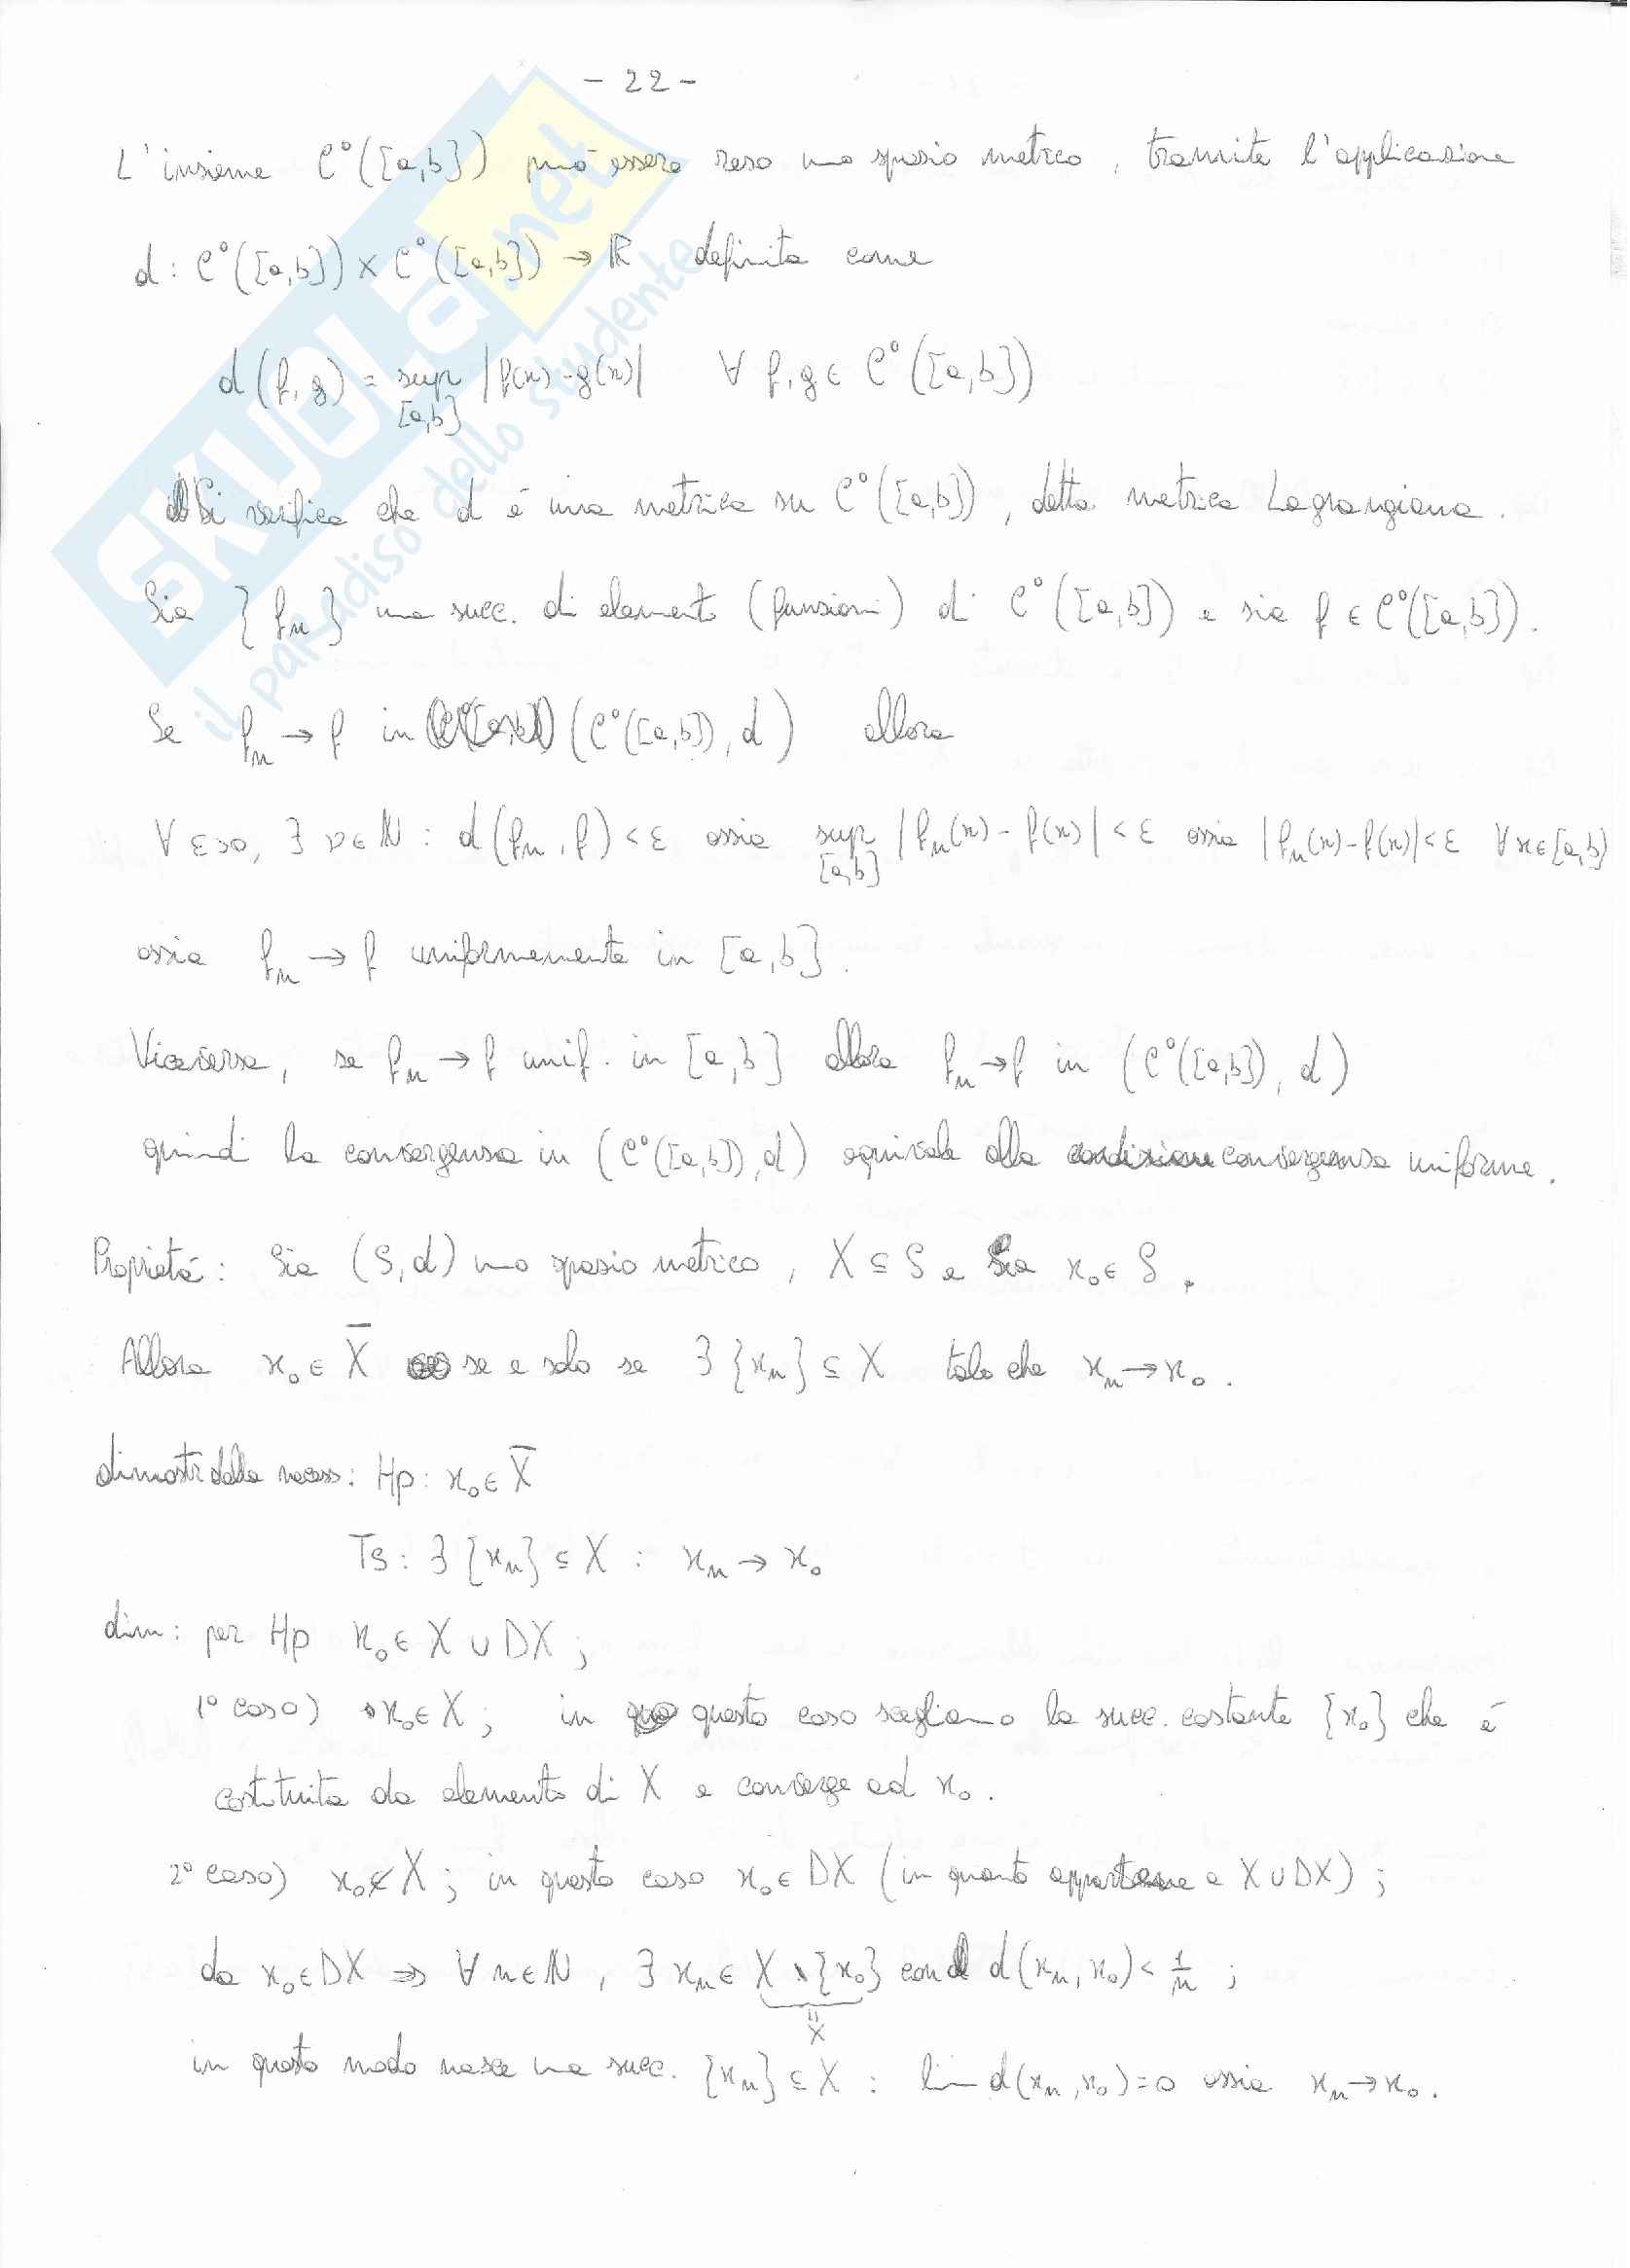 - 22 -
L'insieme C°([a,b]) può essere reso uno spazio metrico, tramite l'applicazione
d: C°([a,b]) × C°([a,b]) → ℝ definita come
d(f,g) = sup |f(x)-g(x)| ∀ f,g ∈ C°([a,b])
[a,b]
Si verifica che d é una metrica su C°([a,b]), detta metrica Lagrangiana.
Sia {fn} una succ. di elementi (funzioni) di C°([a,b]) e sia f ∈ C°([a,b]).
Se fn → f in (C°([a,b]), d) allora
∀ ε>0, ∃ ν∈ℕ : d(fn, f) < ε ossia sup |fn(x) - f(x)| < ε ossia |fn(x)-f(x)|<ε ∀x∈[a,b]
[a,b]
ossia fn → f uniformemente in [a,b].
Viceversa, se fn → f unif. in [a,b] allora fn → f in (C°([a,b]), d)
quindi la convergenza in (C°([a,b]), d) equivale alla convergenza uniforme.
Proprietá: Sia (S,d) uno spazio metrico, X ⊆ S e sia x₀ ∈ S.
Allora x₀ ∈ X̅ se e solo se ∃ {xn} ⊆ X tale che xn → x₀.
dimostr. della necess: Hp: x₀ ∈ X̅
Ts: ∃ {xn} ⊆ X : xn → x₀
dim: per Hp x₀ ∈ X ∪ DX ;
1° caso) x₀ ∈ X ; in questo caso scegliamo la succ. costante {x₀} che é
costituita da elementi di X e converge ad x₀.
2° caso) x₀ ∉ X ; in questo caso x₀ ∈ DX (in quanto appartiene a X ∪ DX) ;
da x₀ ∈ DX ⇒ ∀ n∈ℕ, ∃ xn ∈ X \ {x₀} con d(xn, x₀) < 1/n ;
=
X
in questo modo nasce una succ. {xn} ⊆ X : lim d(xn, x₀) = 0 ossia xn → x₀.
SKUOLA.net
il paradiso dello studente